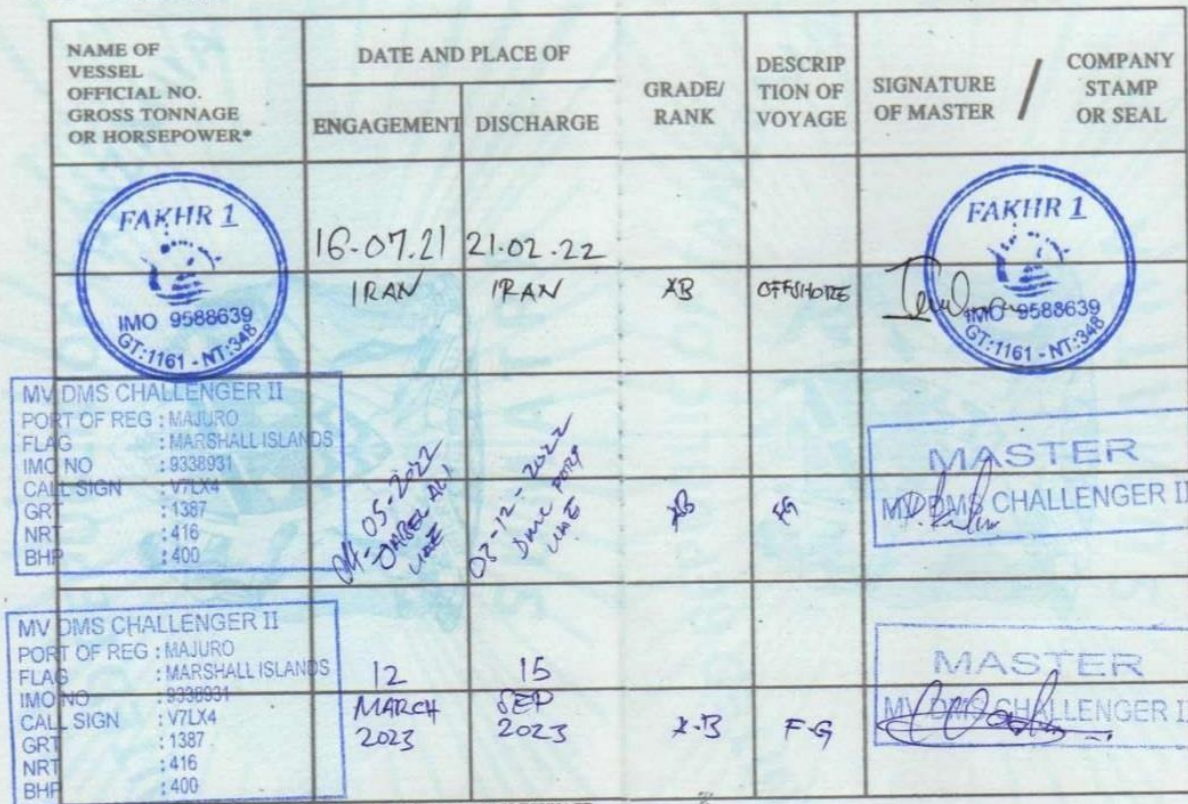 NAME OF
VESSEL
OFFICIAL NO.
GROSS TONNAGE
OR HORSEPOWER*
DATE AND PLACE OF
ENGAGEMENT
DISCHARGE
GRADE/
RANK
DESCRIP
TION OF
VOYAGE
SIGNATURE
OF MASTER
/
COMPANY
STAMP
OR SEAL
FAKHR 1
IMO 9588639
GT:1161 - NT:348
16-07.21
IRAN
21.02.22
IRAN
AB
OFFSHORE
FAKHR 1
IMO 9588639
GT:1161 - NT:348
MV DMS CHALLENGER II
PORT OF REG : MAJURO
FLAG : MARSHALL ISLANDS
IMO NO : 9338931
CALL SIGN : V7LX4
GRT : 1387
NRT : 416
BHP : 400
05-2022
JABEL ALI
UAE
03-12-2022
DMC PORT
UAE
AB
FG
MASTER
MV DMS CHALLENGER II
MV DMS CHALLENGER II
PORT OF REG : MAJURO
FLAG : MARSHALL ISLANDS
IMO NO : 9338931
CALL SIGN : V7LX4
GRT : 1387
NRT : 416
BHP : 400
12
MARCH
2023
15
SEP
2023
A-B
F-G
MASTER
MV DMS CHALLENGER II